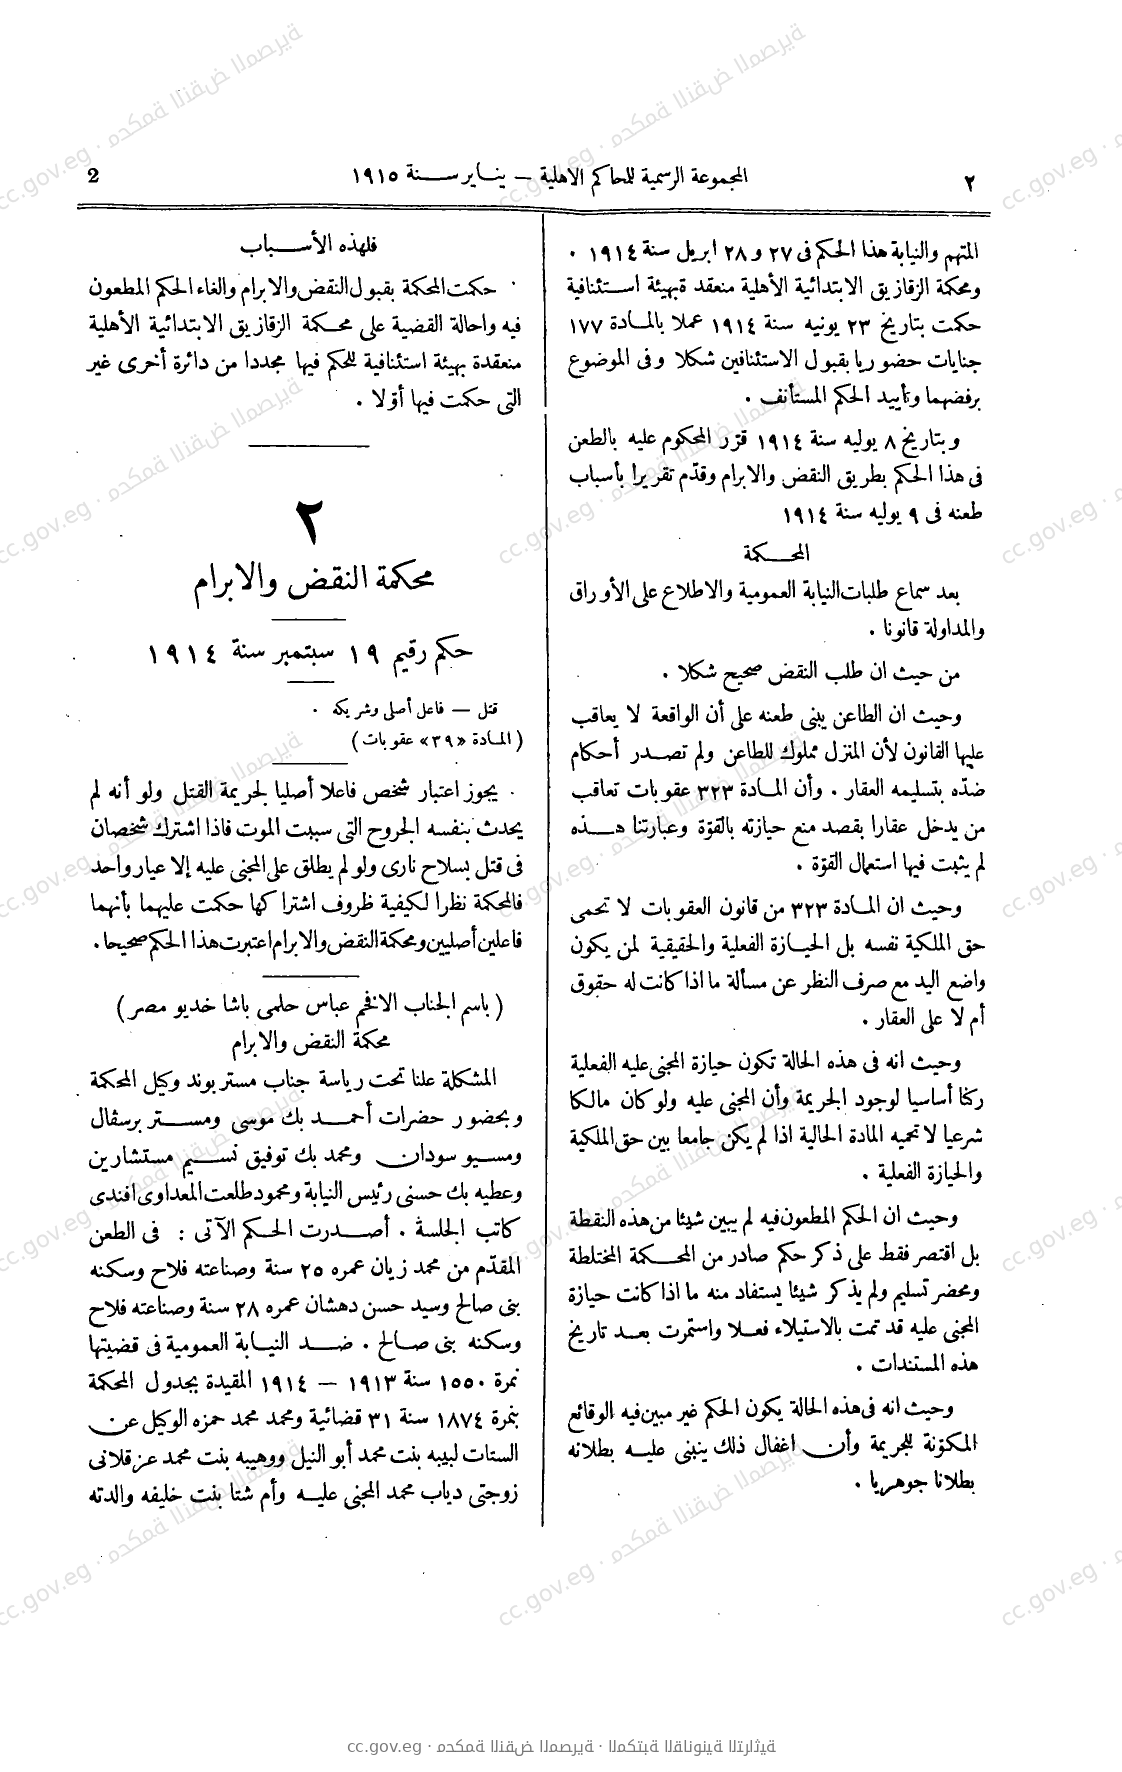 ٢
المجموعة الرسمية للمحاكم الاهلية — ينـاير سـنة ١٩١٥
2
المتهم والنيابة هذا الحكم فى ٢٧ و ٢٨ ابريل سنة ١٩١٤ .
ومحكمة الزقازيق الابتدائية الأهلية منعقد ةبهيئة اسـتئنافية
حكمت بتاريخ ٢٣ يونيه سنة ١٩١٤ عملا بالمـادة ١٧٧
جنايات حضوريا بقبول الاستئنافين شكلا وفى الموضوع
برفضهما وتأييد الحكم المستأنف .
وبتاريخ ٨ يوليه سنة ١٩١٤ قرّر المحكوم عليه بالطعن
فى هذا الحكم بطريق النقض والابرام وقدّم تقريرا بأسباب
طعنه فى ٩ يوليه سنة ١٩١٤
المحـــكمة
بعد سماع طلبات النيابة العمومية والاطلاع على الأوراق
والمداولة قانونا .
من حيث ان طلب النقض صحيح شكلا .
وحيث ان الطاعن يبنى طعنه على أن الواقعة لا يعاقب
عليها القانون لأن المنزل مملوك للطاعن ولم تصـدر أحكام
ضدّه بتسليمه العقار . وأن المـادة ٣٢٣ عقوبات تعاقب
من يدخل عقارا بقصد منع حيازته بالقوّة وعبارتنا هـــذه
لم يثبت فيها استعمال القوّة .
وحيث ان المـادة ٣٢٣ من قانون العقوبات لا تحمى
حق الملكية نفسه بل الحيـازة الفعلية والحقيقية لمن يكون
واضع اليد مع صرف النظر عن مسألة ما اذا كانت له حقوق
أم لا على العقار .
وحيث انه فى هذه الحالة تكون حيازة المجنى عليه الفعلية
ركنا أساسيا لوجود الجريمة وأن المجنى عليه ولو كان مالكا
شرعيا لا تحميه المادة الحالية اذا لم يكن جامعا بين حق الملكية
والحيازة الفعلية .
وحيث ان الحكم المطعون فيه لم يبين شيئا من هذه النقطة
بل اقتصر فقط على ذكر حكم صادر من المحـكمة المختلطة
ومحضر تسليم ولم يذكر شيئا يستفاد منه ما اذا كانت حيازة
المجنى عليه قد تمت بالاستيلاء فعـلا واستمرت بعـد تاريخ
هذه المستندات .
وحيث انه فى هذه الحالة يكون الحكم غير مبين فيه الوقائع
المكوّنة للجريمة وأن اغفال ذلك ينبنى عليـه بطلانه
بطلانا جوهريا .
فلهذه الأســباب
حكمت المحكمة بقبول النقض والابرام والغاء الحكم المطعون
فيه واحالة القضية على محـكمة الزقازيق الابتدائية الأهلية
منعقدة بهيئة استئنافية للحكم فيها مجددا من دائرة أخرى غير
التى حكمت فيها أوّلا .
٢
محكمة النقض والابرام
حكم رقيم ١٩ سبتمبر سنة ١٩١٤
قتل — فاعل أصلى وشريكه .
( المـادة «٣٩» عقوبات )
يجوز اعتبار شخص فاعلا أصليا لجريمة القتل ولو أنه لم
يحدث بنفسه الجروح التى سببت الموت فاذا اشترك شخصان
فى قتل بسلاح نارى ولو لم يطلق على المجنى عليه إلا عيار واحد
فالمحكمة نظرا لكيفية ظروف اشتراكها حكمت عليهما بأنهما
فاعلين أصليين ومحكمة النقض والابرام اعتبرت هذا الحكم صحيحا .
( باسم الجناب الافخم عباس حلمى باشا خديو مصر )
محكمة النقض والابرام
المشكلة علنا تحت رياسة جناب مستر بوند وكيل المحكمة
وبحضور حضرات أحمـد بك موسى ومسـتر برسڤال
ومسيو سودان ومحمد بك توفيق نسـيم مستشارين
وعطيه بك حسنى رئيس النيابة ومحمود طلعت المعداوى افندى
كاتب الجلسة . أصـدرت الحـكم الآتى : فى الطعن
المقدّم من محمد زيان عمره ٢٥ سنة وصناعته فلاح وسكنه
بنى صالح وسيد حسن دهشان عمره ٢٨ سنة وصناعته فلاح
وسكنه بنى صـالح . ضـد النيـابة العمومية فى قضيتها
نمرة ١٥٥٠ سنة ١٩١٣ — ١٩١٤ المقيدة بجدول المحكمة
بنمرة ١٨٧٤ سنة ٣١ قضائية ومحمد محمد حمزه الوكيل عن
الستات لبيبه بنت محمد أبو النيل ووهيبه بنت محمد عزقلانى
زوجتى دياب محمد المجنى عليـه وأم شتا بنت خليفه والدته
cc.gov.eg · محكمة النقض المصرية · المكتبة القانونية التراثية